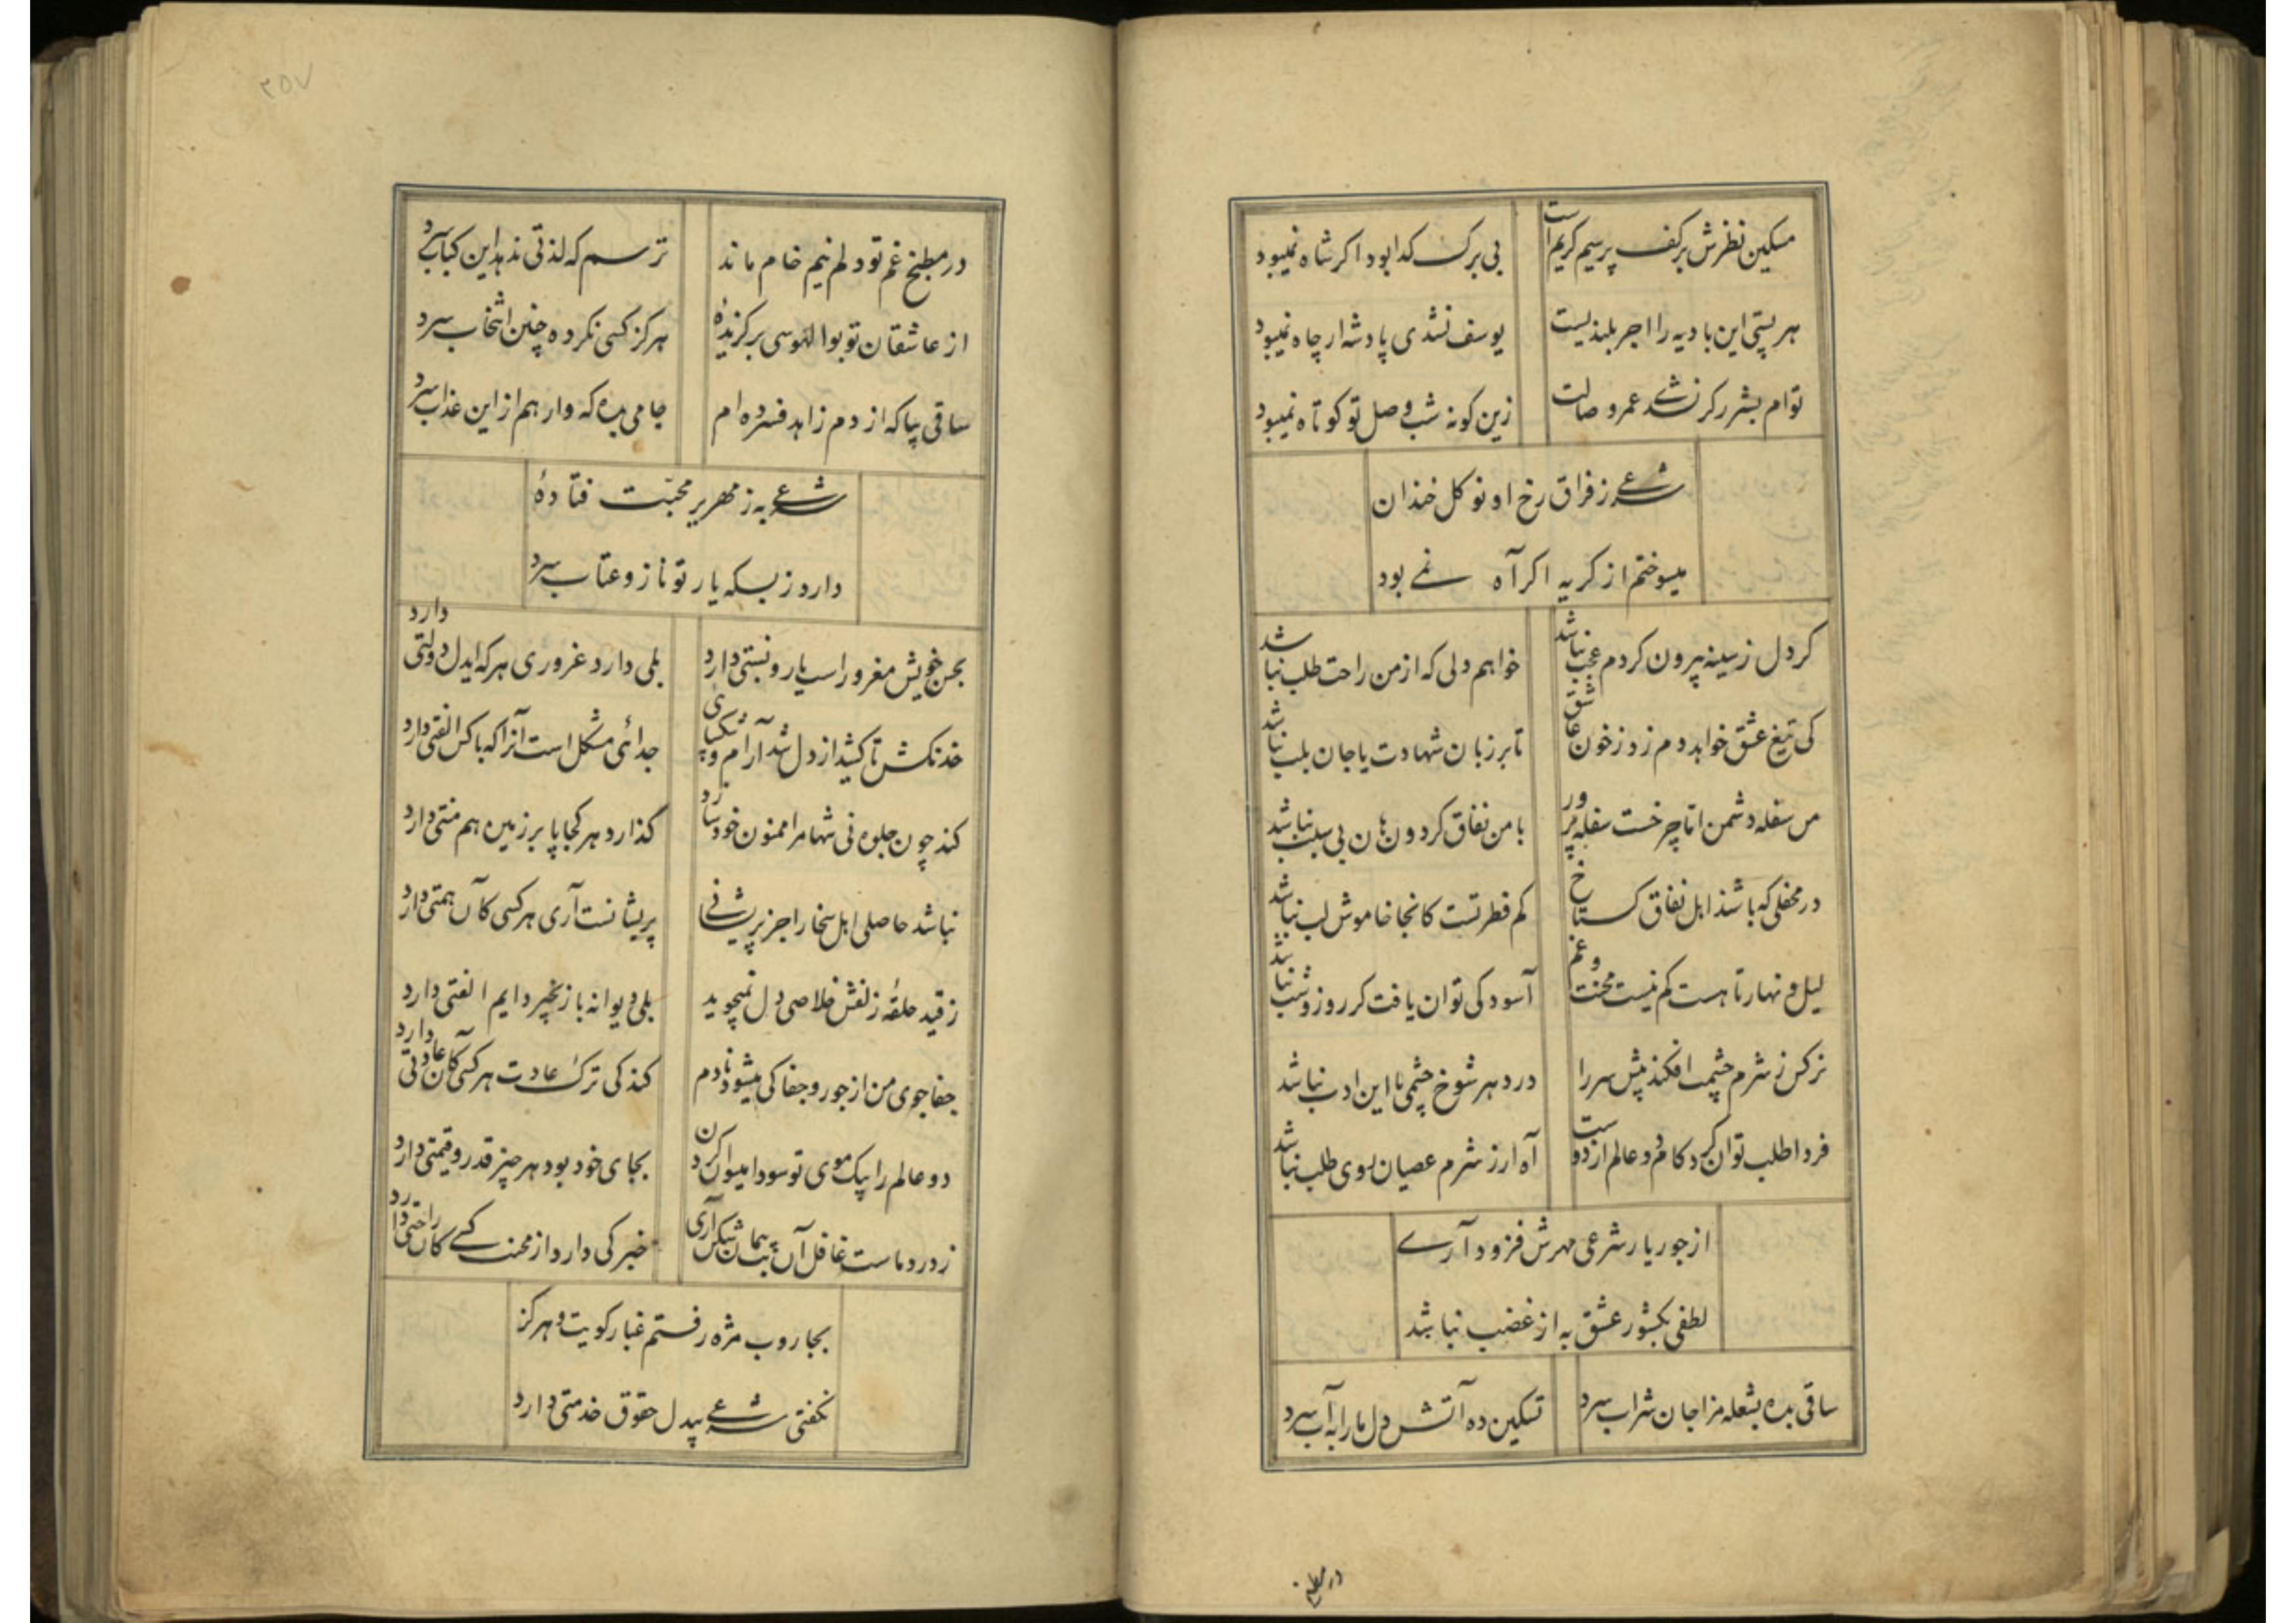 مسکین نظرش بر کف پر سیم کریم است بی برک کدا بود اکر شاه نمیبود
هر پستی این بادیه را اجر بلندیست یوسف نشدی پادشه ار چاه نمیبود
توام بشرر کر نشدے عمر وصالت زین کونه شب وصل تو کوتاه نمیبود
شرعے ز فراق رخ او نو کل خندان
میسوختم از کریه اکر آه نمے بود
کر دل ز سینه بیرون کردم عجب نباشد خواهم دلی که از من راحت طلب نباشد
کی تیغ عشق خواهد دم زد ز خون عاشق تا بر زبان شهادت یا جان بلب نباشد
من سفله دشمن اما چرخست سفله پرور با من نفاق کردون هان بی سبب نباشد
در محفلی که باشند اهل نفاق کستاخ کم فطرتست کانجا خاموش لب نباشد
لیل و نهار تا هست کم نیست محنت و غم آسودکی توان یافت کر روز و شب نباشد
نرکس ز شرم چشمت افکند پیش سر را در دهر شوخ چشمی با این ادب نباشد
فردا طلب توان کرد کام دو عالم از دوست آه ار ز شرم عصیان روی طلب نباشد
از جور یار شرعی مهرش فزود آرے
لطفی بکشور عشق به از غضب نباشد
ساقی بده بشعله مزاجان شراب سرد تسکین ده آتش دل ما را به آب سرد
در مطبخ
۲۵۷
در مطبخ غم تو دلم نیم خام ماند ترسم که لذتی ندهد این کباب سرد
از عاشقان تو بوالهوسی برکزیدهٔ هرکز کسی نکرده چنین انتخاب سرد
ساقی بیا که از دم زاهد فسرده ام جامی بده که وارهم از این عذاب سرد
شرعے به زمهریر محبّت فتادهٔ
دارد ز بسکه یار تو ناز و عتاب سرد
بحسن خویش مغرور است یارو نسبتی دارد بلی دارد غروری هر که ایدل دولتی دارد
خدنکش تا کشید از دل شد آرام و شکیبائی جدائی مشکل است آنرا که با کس الفتی دارد
کند چون جلوه نی شها مرا ممنون خود سازد کذارد هر کجا پا بر زمین هم منتی دارد
نباشد حاصلی اهل سخا را جز پریشانے پریشانست آری هر کسی کآن همتی دارد
ز قید حلقهٔ زلفش خلاصی دل نمیجوید بلی دیوانه با زنجیر دایم الفتی دارد
جفاجوی من از جور و جفا کی میشود نادم کند کی ترک عادت هر کسی کآن عادتی دارد
دو عالم را بیک موی تو سودا میتوان کرد بجای خود بود هر چیز قدر و قیمتی دارد
ز درد ماست غافل آن بت پیمان شکن آری خبر کی دارد از محنت کسے کآن راحتی دارد
بجاروب مژه رفتم غبار کویت و هرکز
نکفتی شرعے بیدل حقوق خدمتی دارد